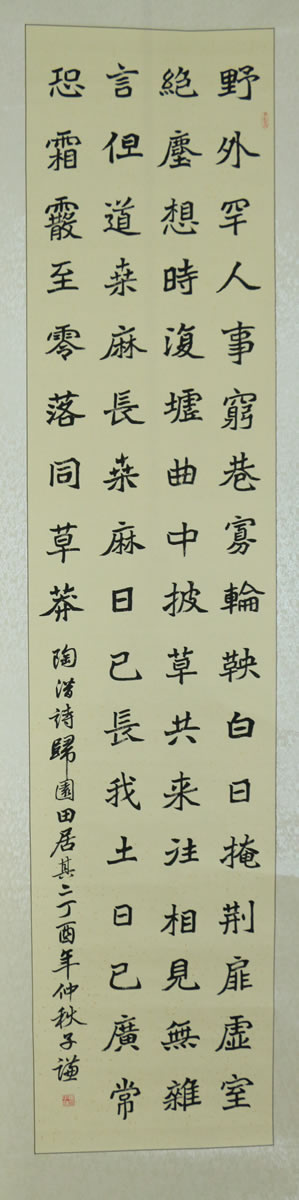 野外罕人事窮巷寡輪鞅白日掩荆扉虚室
絶塵想時復墟曲中披草共来往相見無雜
言但道桒麻長桒麻日已長我土日已廣常
恐霜霰至零落同草莽
陶潜詩歸園田居其二丁酉年仲秋子謙